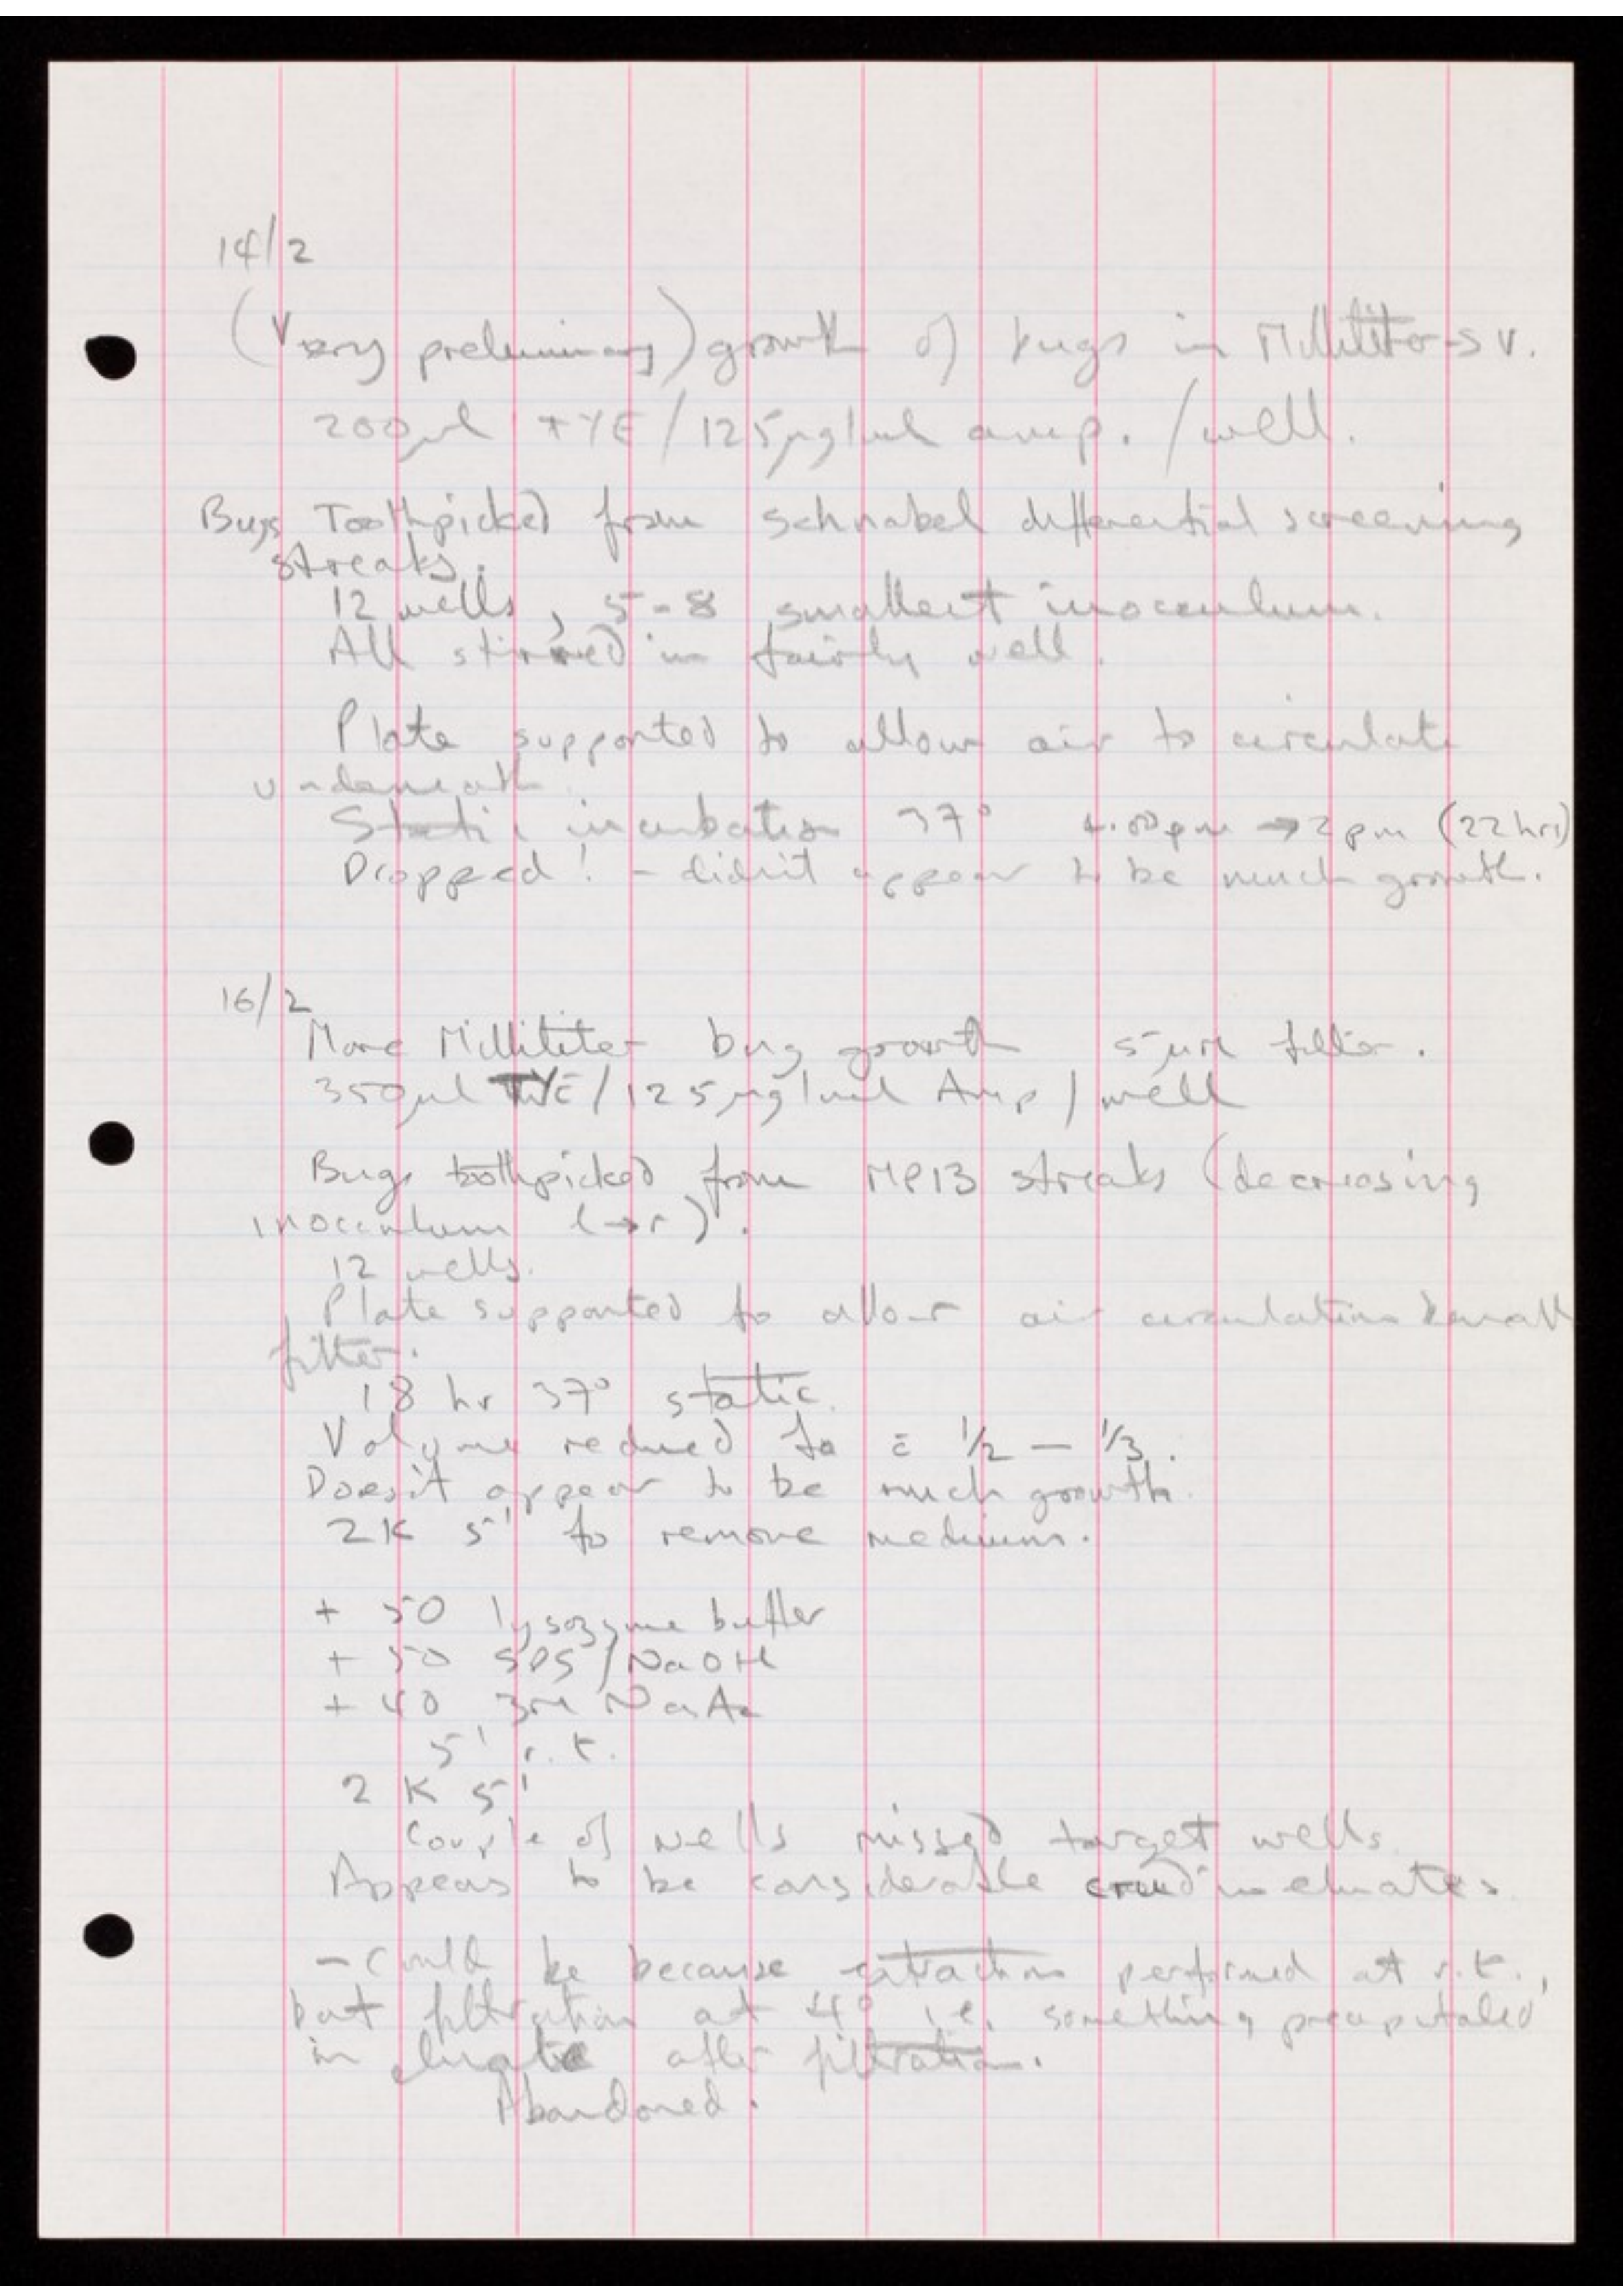 14/2
(Very preliminary) growth of bugs in Millititer-SV.
200µl TYE/125µg/ml amp. /well.
Bugs Toothpicked from Schnabel differential screening
streaks.
12 wells, 5-8 smallest inocculum.
All stirred in fairly well.
Plate supported to allow air to circulate
underneath.
Static incubation 37° 4.00pm → 2pm (22 hrs)
Dropped! - didn't appear to be much growth.
16/2
More Millititer bug growth 5µm filter.
350µl TYE/125µg/ml Amp/well
Bugs toothpicked from MP13 streaks (decreasing
inocculum l→r).
12 wells.
Plate supported to allow air circulation beneath
filter.
18 hr 37° static.
Volume reduced to ≏ 1/2 — 1/3.
Doesn't appear to be much growth.
2K 5' to remove medium.
+ 50 lysozyme buffer
+ 50 SDS/NaOH
+ 40 3M NaAc
5' r.t.
2K 5'
Couple of wells missed target wells.
Appears to be considerable crud in eluates
- could be because extraction performed at r.t.,
but filtration at 4° i.e. something precipitated
in eluate after filtration.
Abandoned.